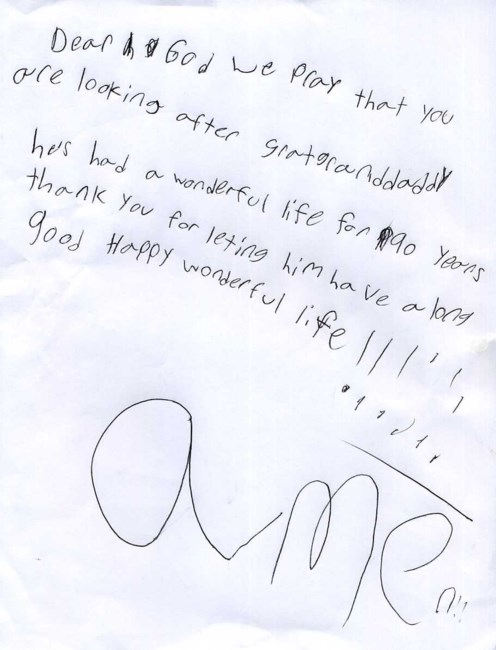 Dear God we pray that you
are looking after gratgranddaddy
he's had a wonderful life for 90 years
thank you for leting him have a long
good Happy wonderful life !!!!!!
amen!!